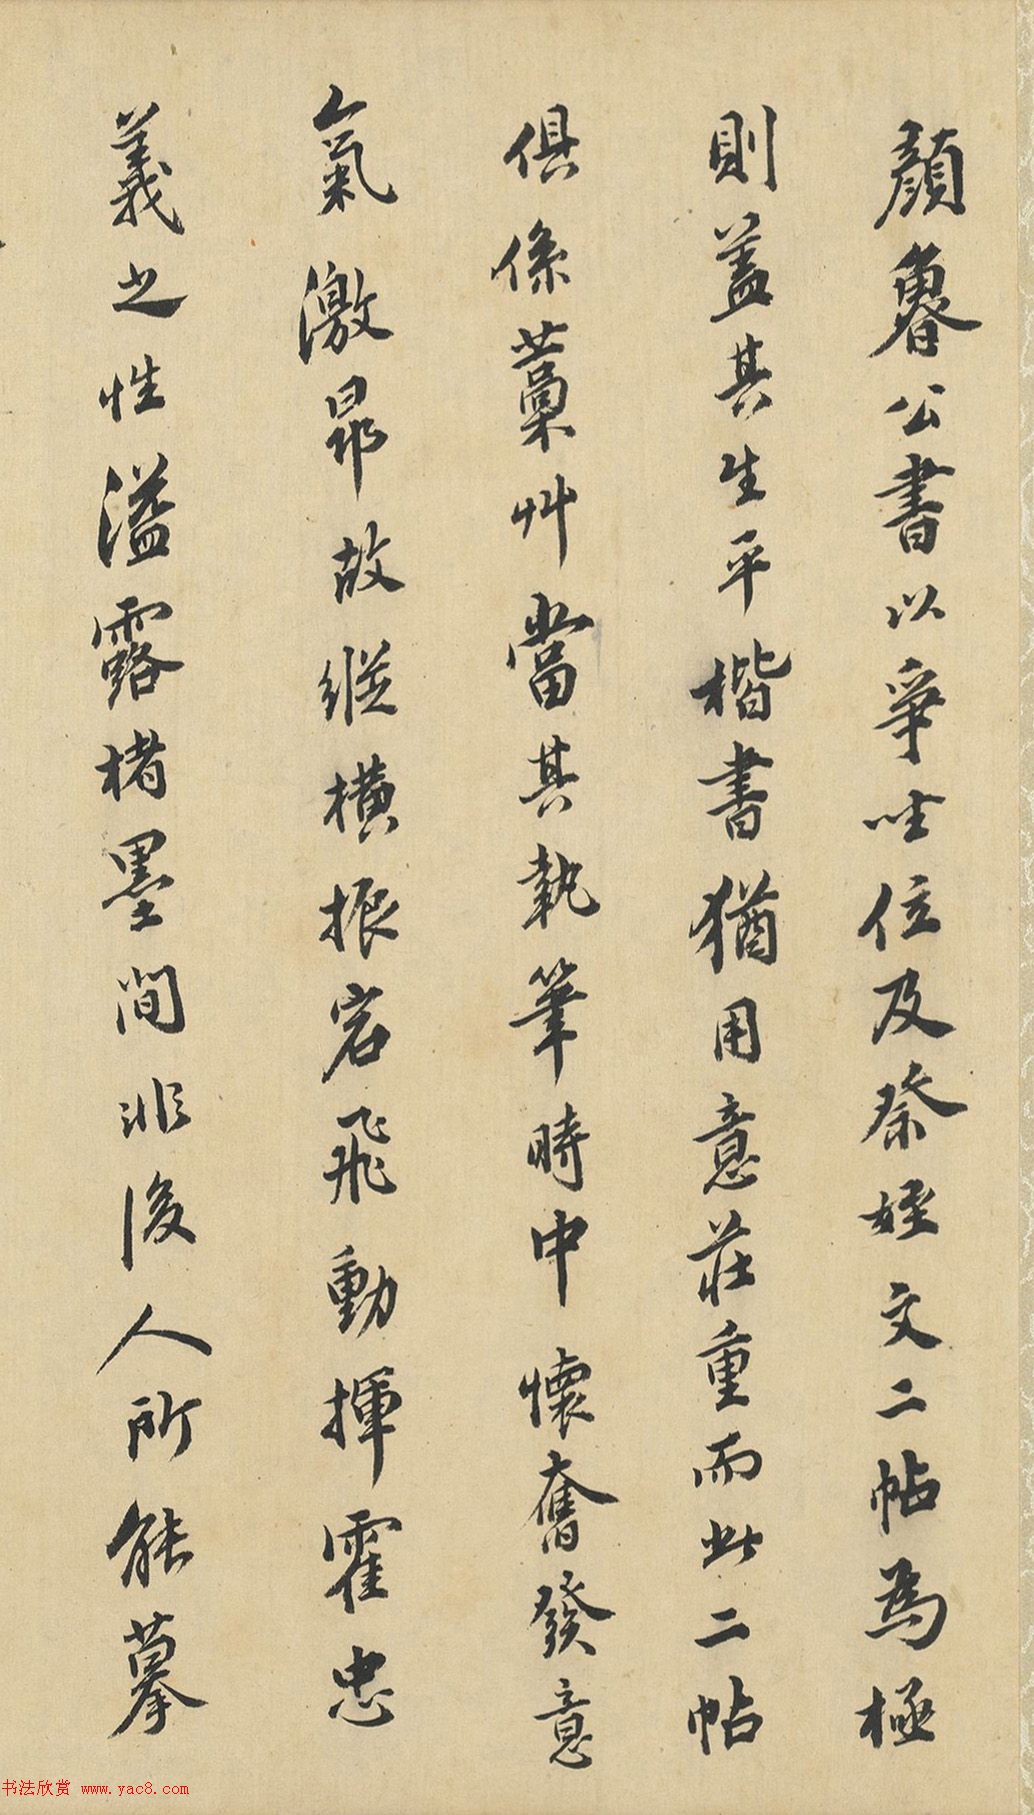 顏魯公書以爭坐位及祭姪文二帖為極
則蓋其生平楷書猶用意莊重而此二帖
俱係藁艸當其執筆時中懷奮發意
氣激昂故縱橫振宕飛動揮霍忠
義之性溢露楮墨間非後人所能摹
书法欣赏 www.yac8.com